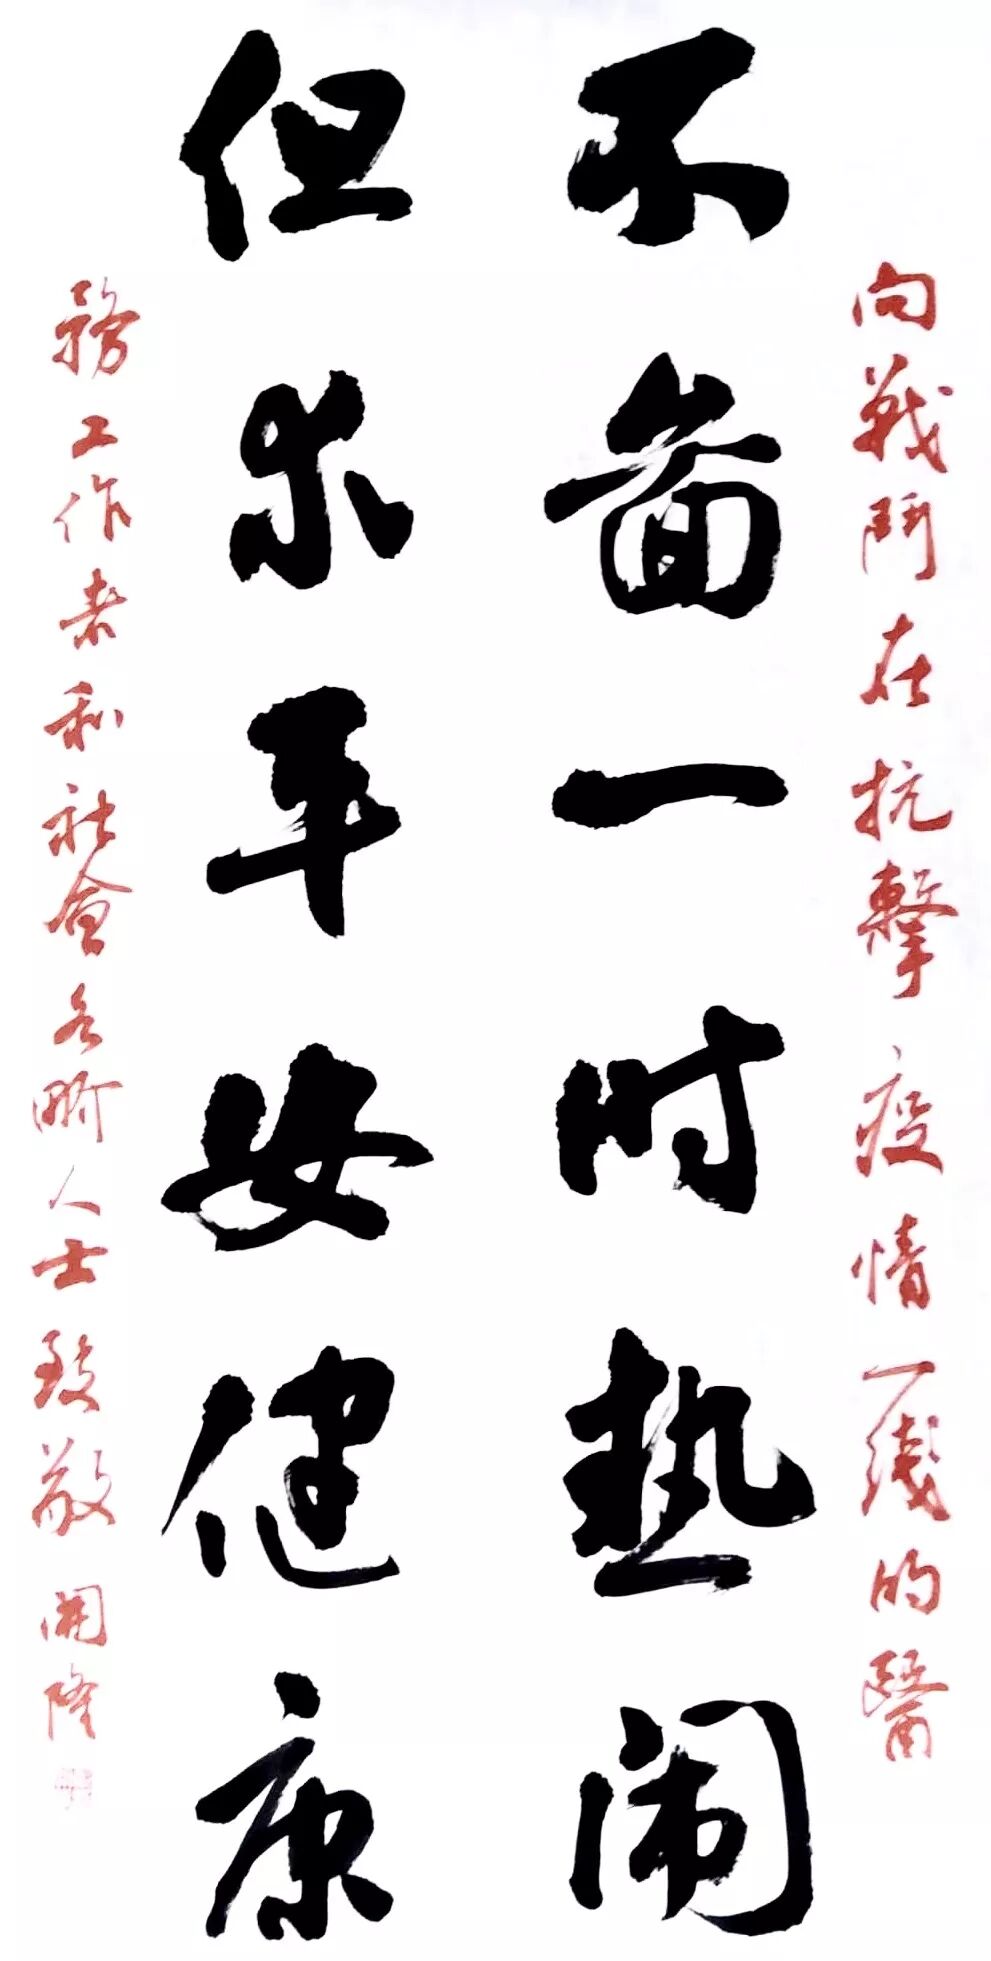 向戰鬥在抗擊疫情一綫的醫
不啚一时热闹
但求平安健康
務工作者和社會各界人士致敬 開隆